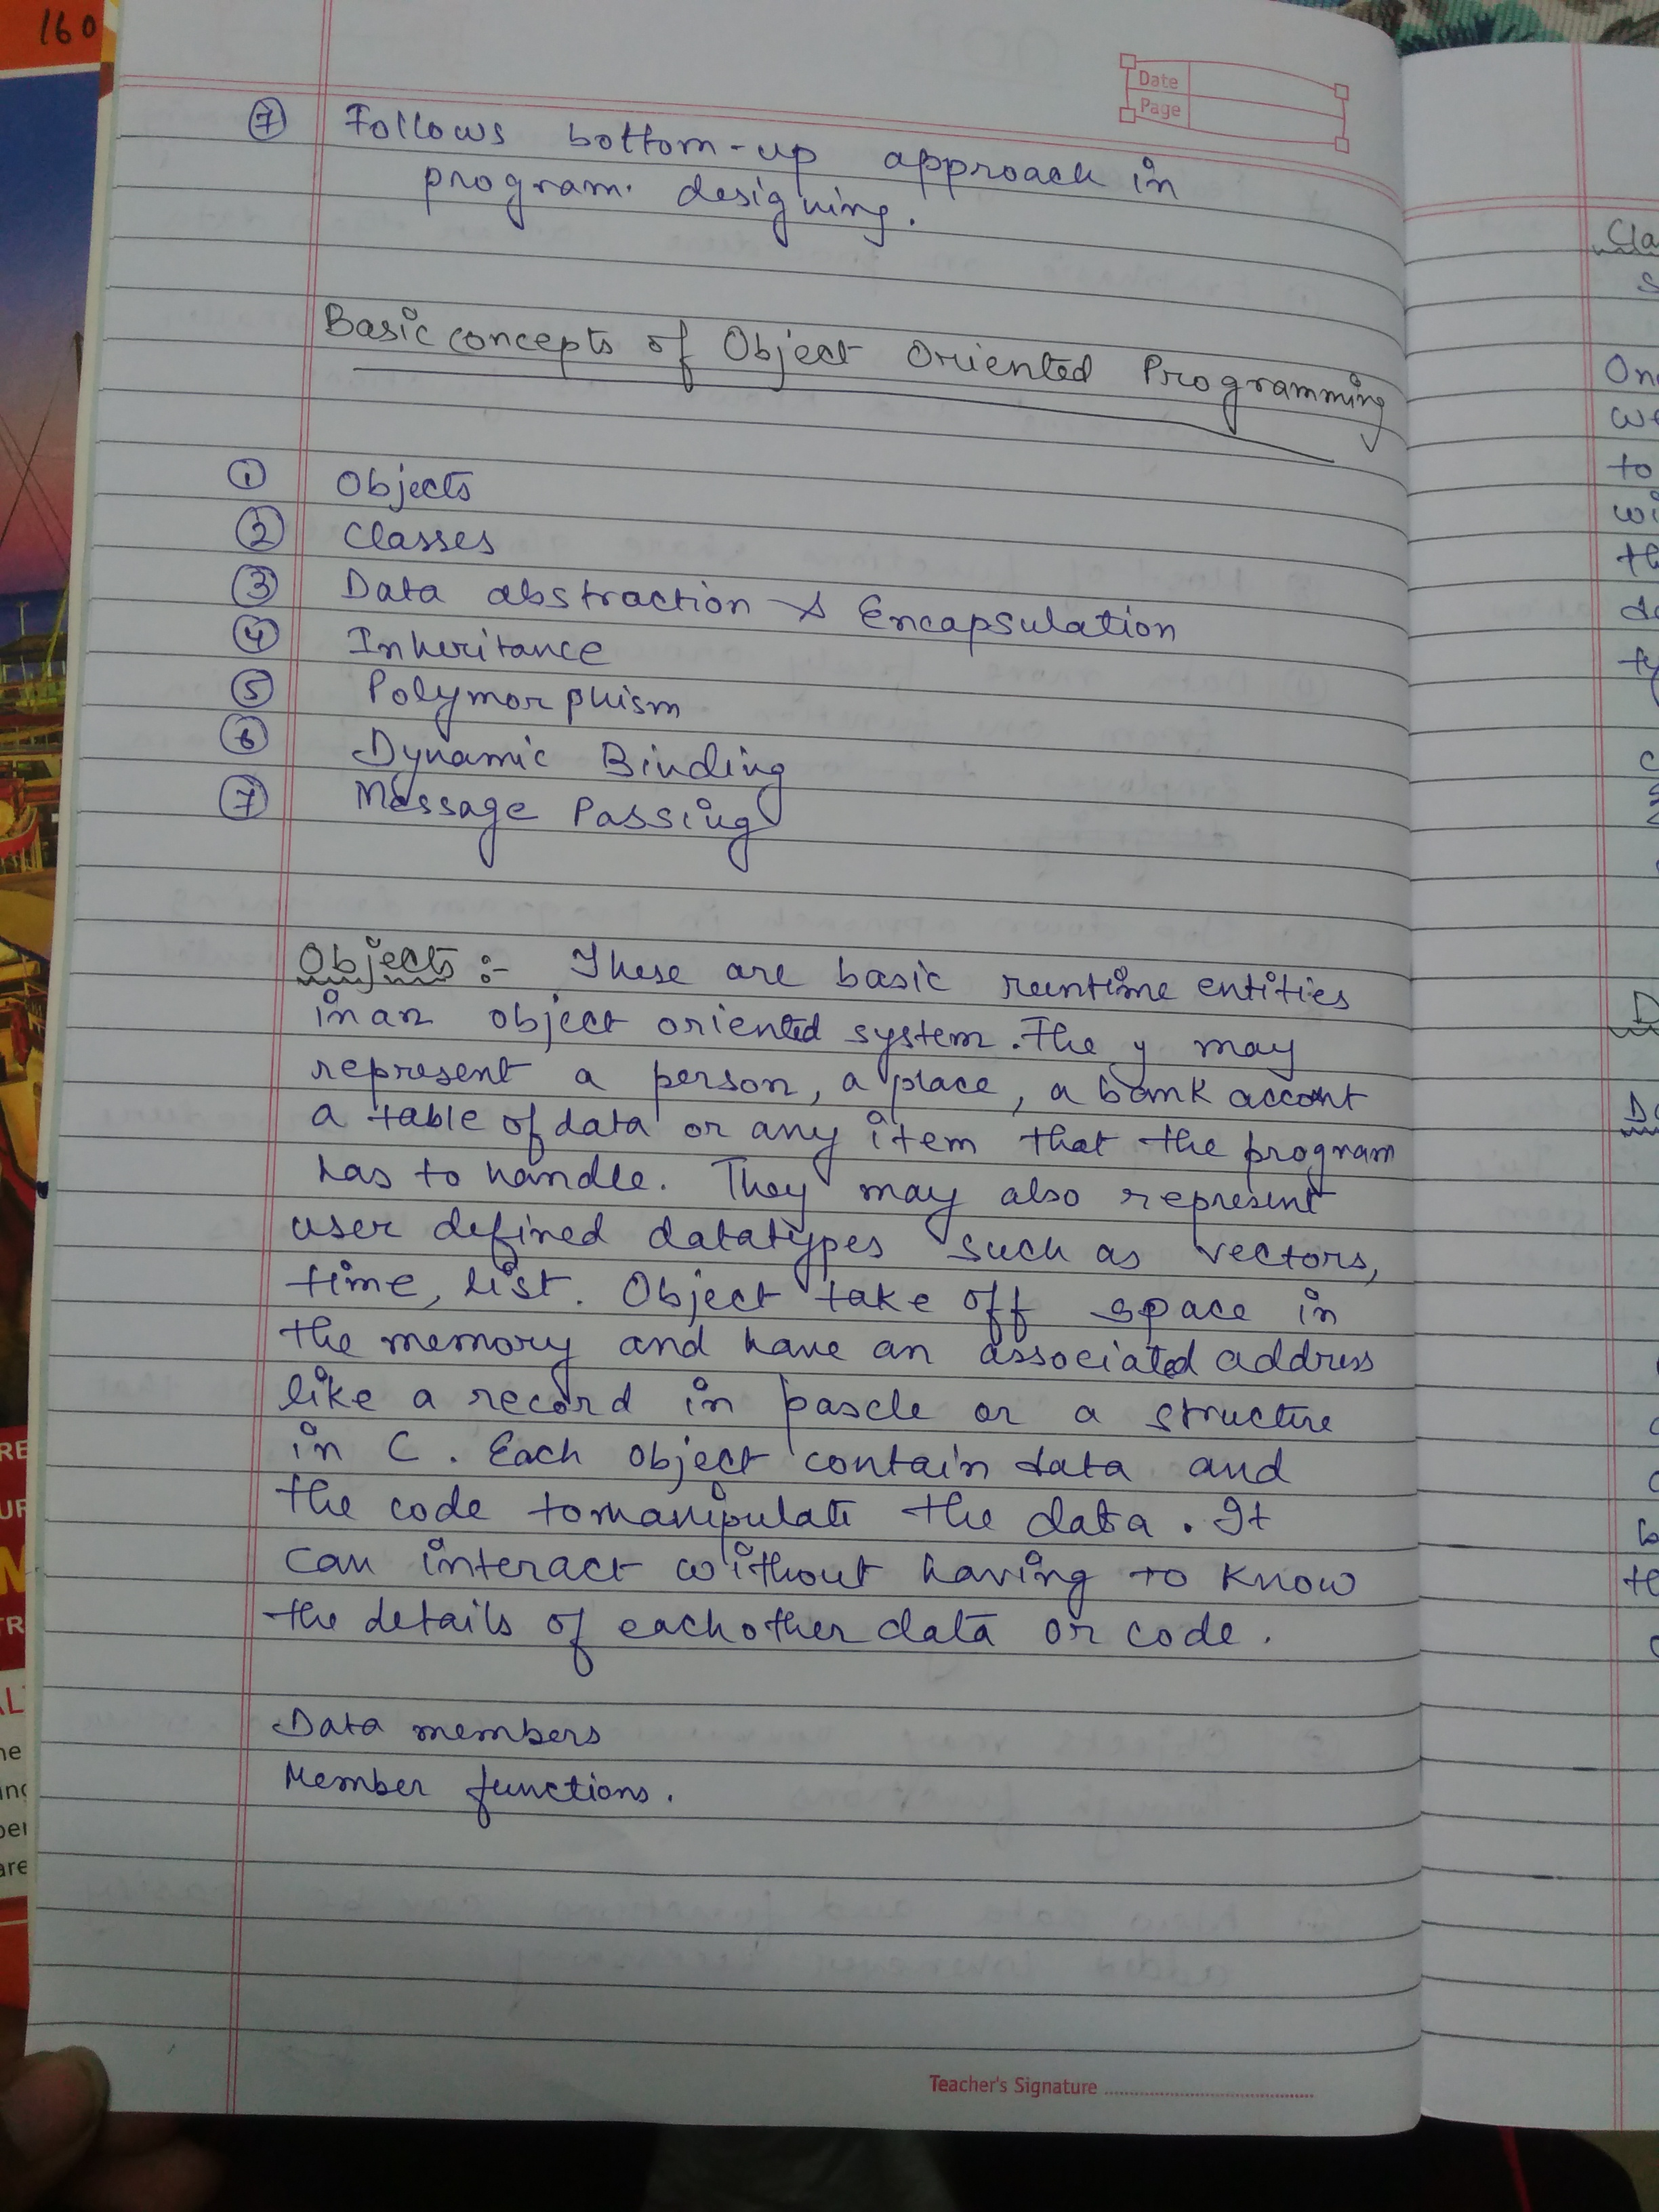 160
Date
Page
7 Follows bottom-up approach in
program. designing.
Basic concepts of Object Oriented Programming
1 Objects
2 Classes
3 Data abstraction & Encapsulation
4 Inheritance
5 Polymorphism
6 Dynamic Binding
7 Message Passing
Objects :- These are basic runtime entities
in an object oriented system. They may
represent a person, a place, a bank accont
a table of data or any item that the program
has to handle. They may also represent
user defined datatypes such as vectors,
time, list. Object take off space in
the memory and have an associated address
like a record in pascle or a structure
in C. Each object contain data and
the code to manipulate the data. It
can interact without having to know
the details of each other data or code.
Data members
Member functions.
Teacher's Signature
Cla
On
we
to
wi
th
de
ty
D
Da
RE
UR
M
TR
AL
he
ind
per
are